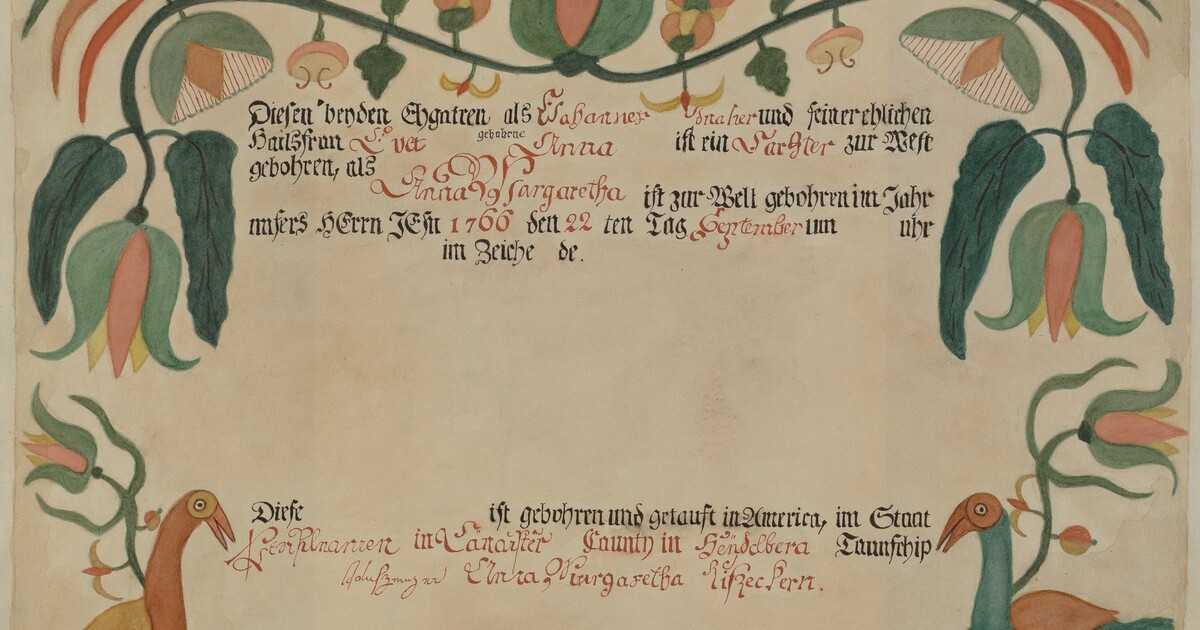 Diesen beyden Ehgatten als Johannes und seiner ehlichen
Hausfrau gebohrne Anna ist ein Tochter zur Welt
gebohren, als
Anna Margaretha ist zur Welt gebohren im Jahr
unsers HErrn JESu 1766 den 22 ten Tag September um uhr
im Zeiche de.
Diese ist gebohren und getauft in America, im Staat
in County in Taunschip
Anna Margaretha